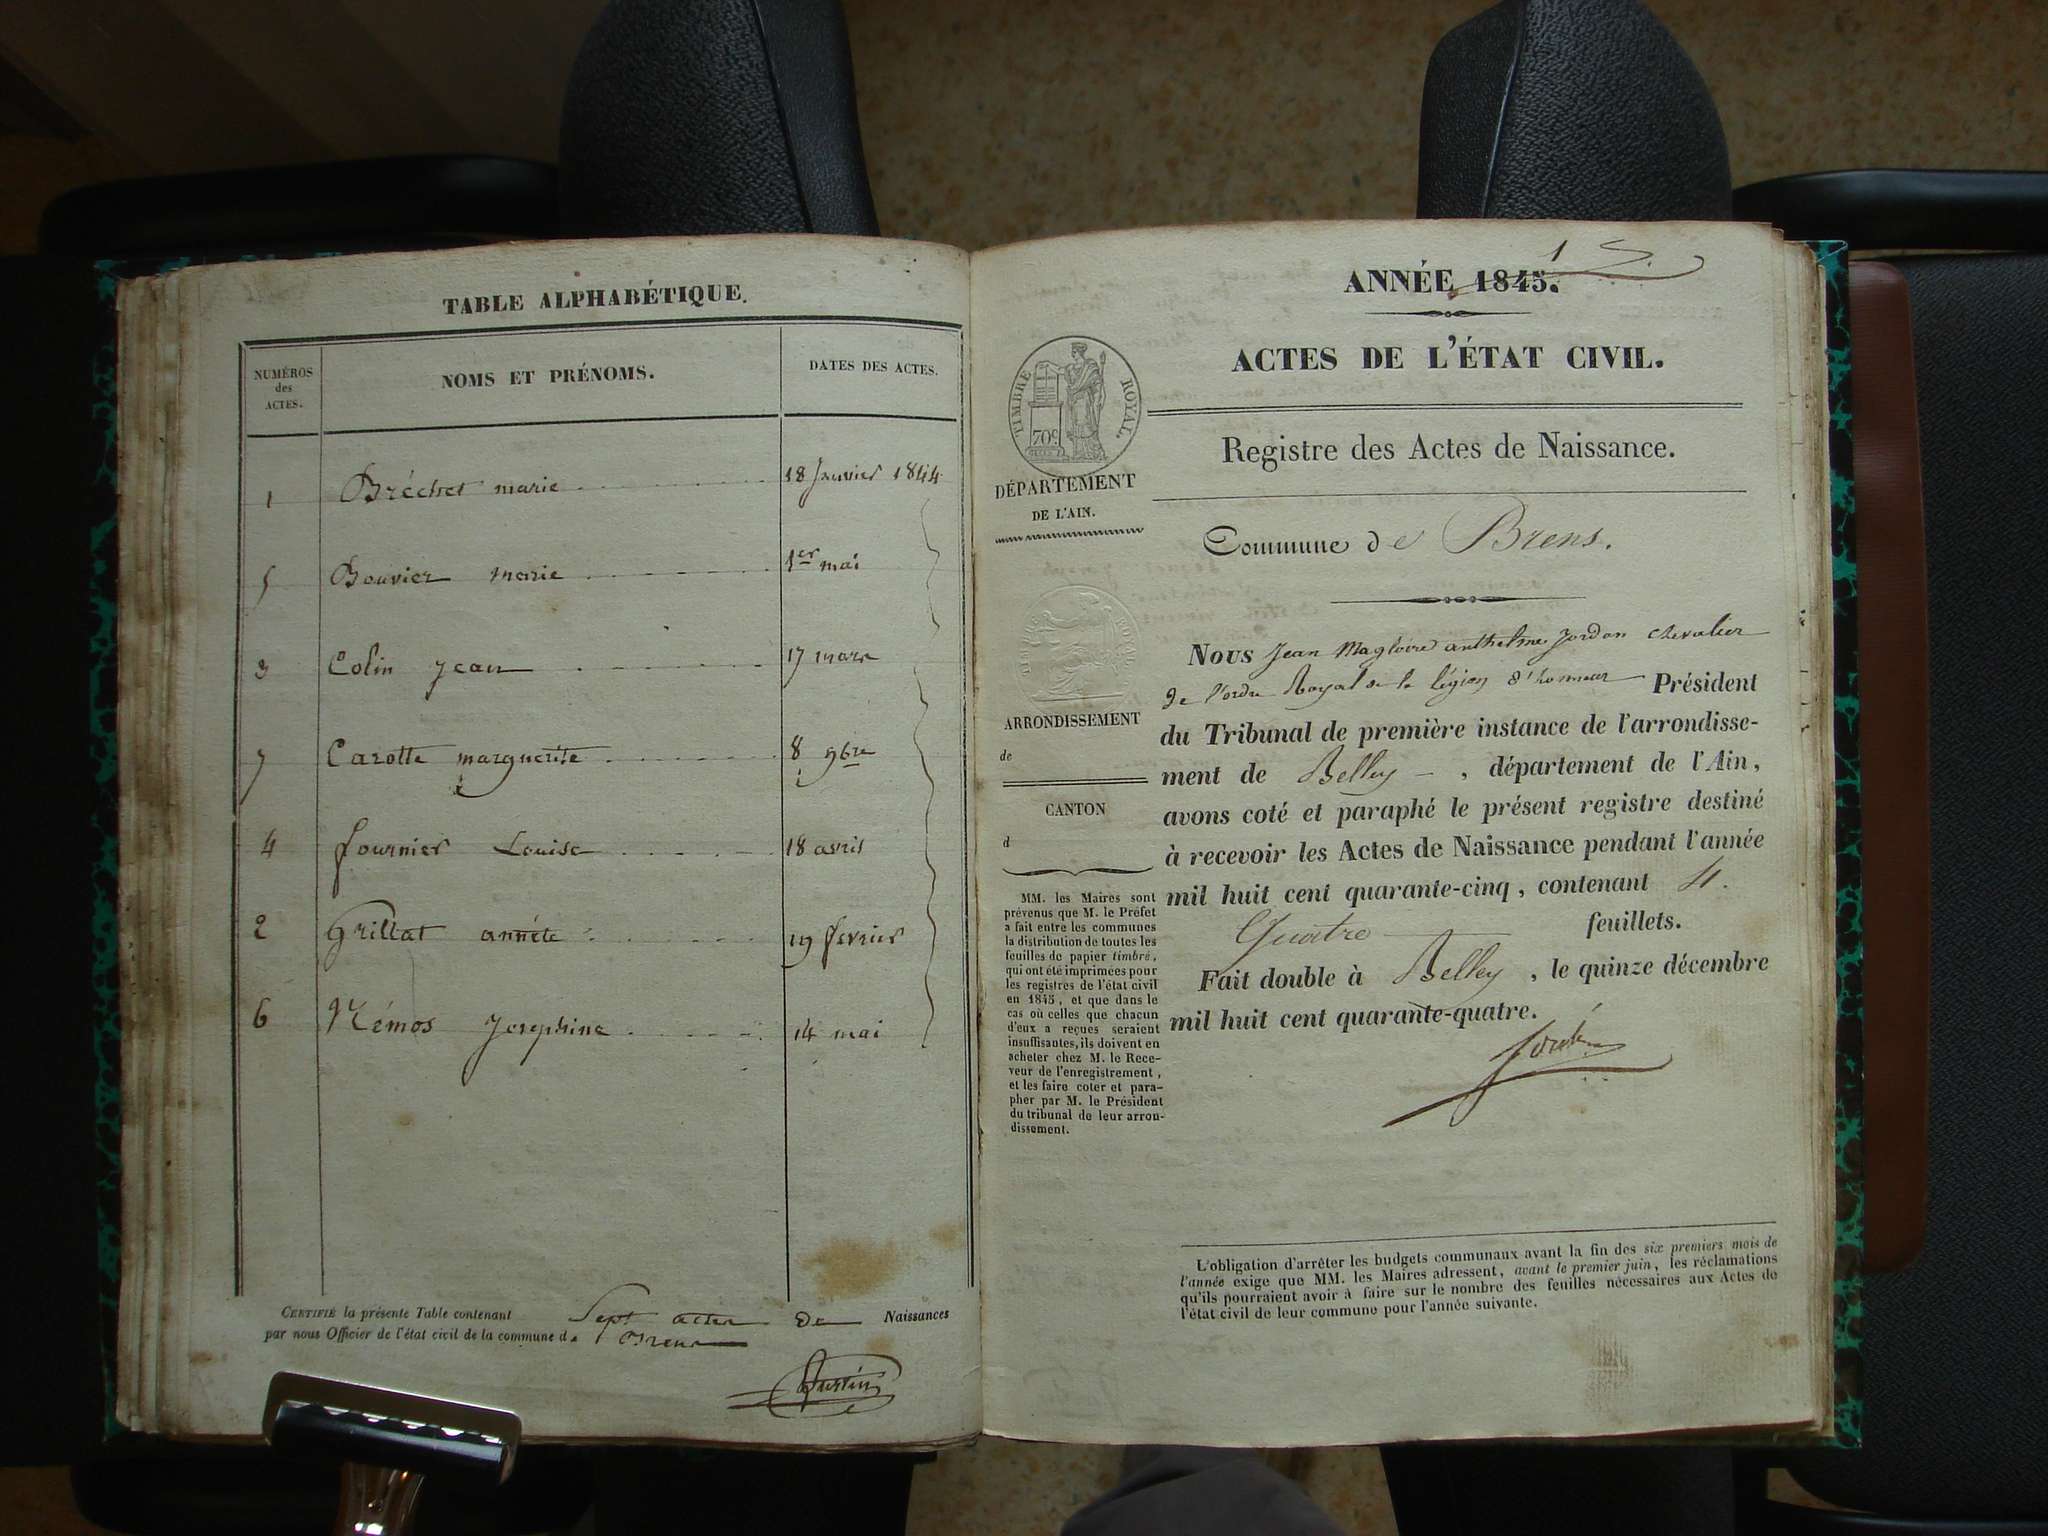 TABLE ALPHABÉTIQUE.
NUMÉROS
des
ACTES.
NOMS ET PRÉNOMS.
DATES DES ACTES.
1 Bréchet marie 18 Janvier 1844
5 Bouvier marie 1er mai
3 Colin Jean 17 mars
7 Carotte marguerite 8 9bre
4 fournier Louise 18 avril
2 Grillat annéte 19 fevrier
6 Némos Josephine 14 mai
CERTIFIÉ la présente Table contenant Sept actes de Naissances
par nous Officier de l'état civil de la commune de Brens
1
ANNÉE 1845.
ACTES DE L'ÉTAT CIVIL.
TIMBRE ROYAL.
70c
DÉPARTEMENT
DE L'AIN.
Registre des Actes de Naissance.
Commune de Brens.
Nous Jean Magloire anthelme Jordan chevalier
de l'ordre Royal de la légion d'honneur Président
du Tribunal de première instance de l'arrondisse-
ment de Belley, département de l'Ain,
avons coté et paraphé le présent registre destiné
à recevoir les Actes de Naissance pendant l'année
mil huit cent quarante-cinq, contenant 4.
Quatre feuillets.
Fait double à Belley, le quinze décembre
mil huit cent quarante-quatre.
ARRONDISSEMENT
de
CANTON
d
MM. les Maires sont
prévenus que M. le Préfet
a fait entre les communes
la distribution de toutes les
feuilles de papier timbré,
qui ont été imprimées pour
les registres de l'état civil
en 1845, et que dans le
cas où celles que chacun
d'eux a reçues seraient
insuffisantes, ils doivent en
acheter chez M. le Rece-
veur de l'enregistrement,
et les faire coter et para-
pher par M. le Président
du tribunal de leur arron-
dissement.
L'obligation d'arrêter les budgets communaux avant la fin des six premiers mois de
l'année exige que MM. les Maires adressent, avant le premier juin, les réclamations
qu'ils pourraient avoir à faire sur le nombre des feuilles nécessaires aux Actes de
l'état civil de leur commune pour l'année suivante.